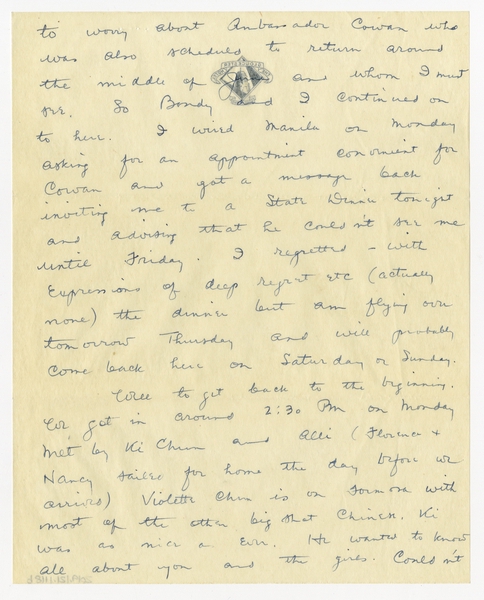 to worry about Ambassador Cowan who
was also scheduled to return around
the middle of June and whom I must
see. So Bondy and I continued on
to here. I wired Manila on Monday
asking for an appointment convenient for
Cowan and got a message back
inviting me to a State Dinner tonight
and advising that he couldn't see me
until Friday. I regretted – with
expressions of deep regret etc (actually
none) the dinner but am flying over
tomorrow Thursday and will probably
come back here on Saturday or Sunday.
Well to get back to the beginning.
We got in around 2:30 PM on Monday
Met by Ki Chun and Alli (Florence +
Nancy sailed for home the day before we
arrived) Violette Chun is on Formosa with
most of the other big shot Chinese. Ki
was as nice as ever. He wanted to know
all about you and the girls. Couldn't